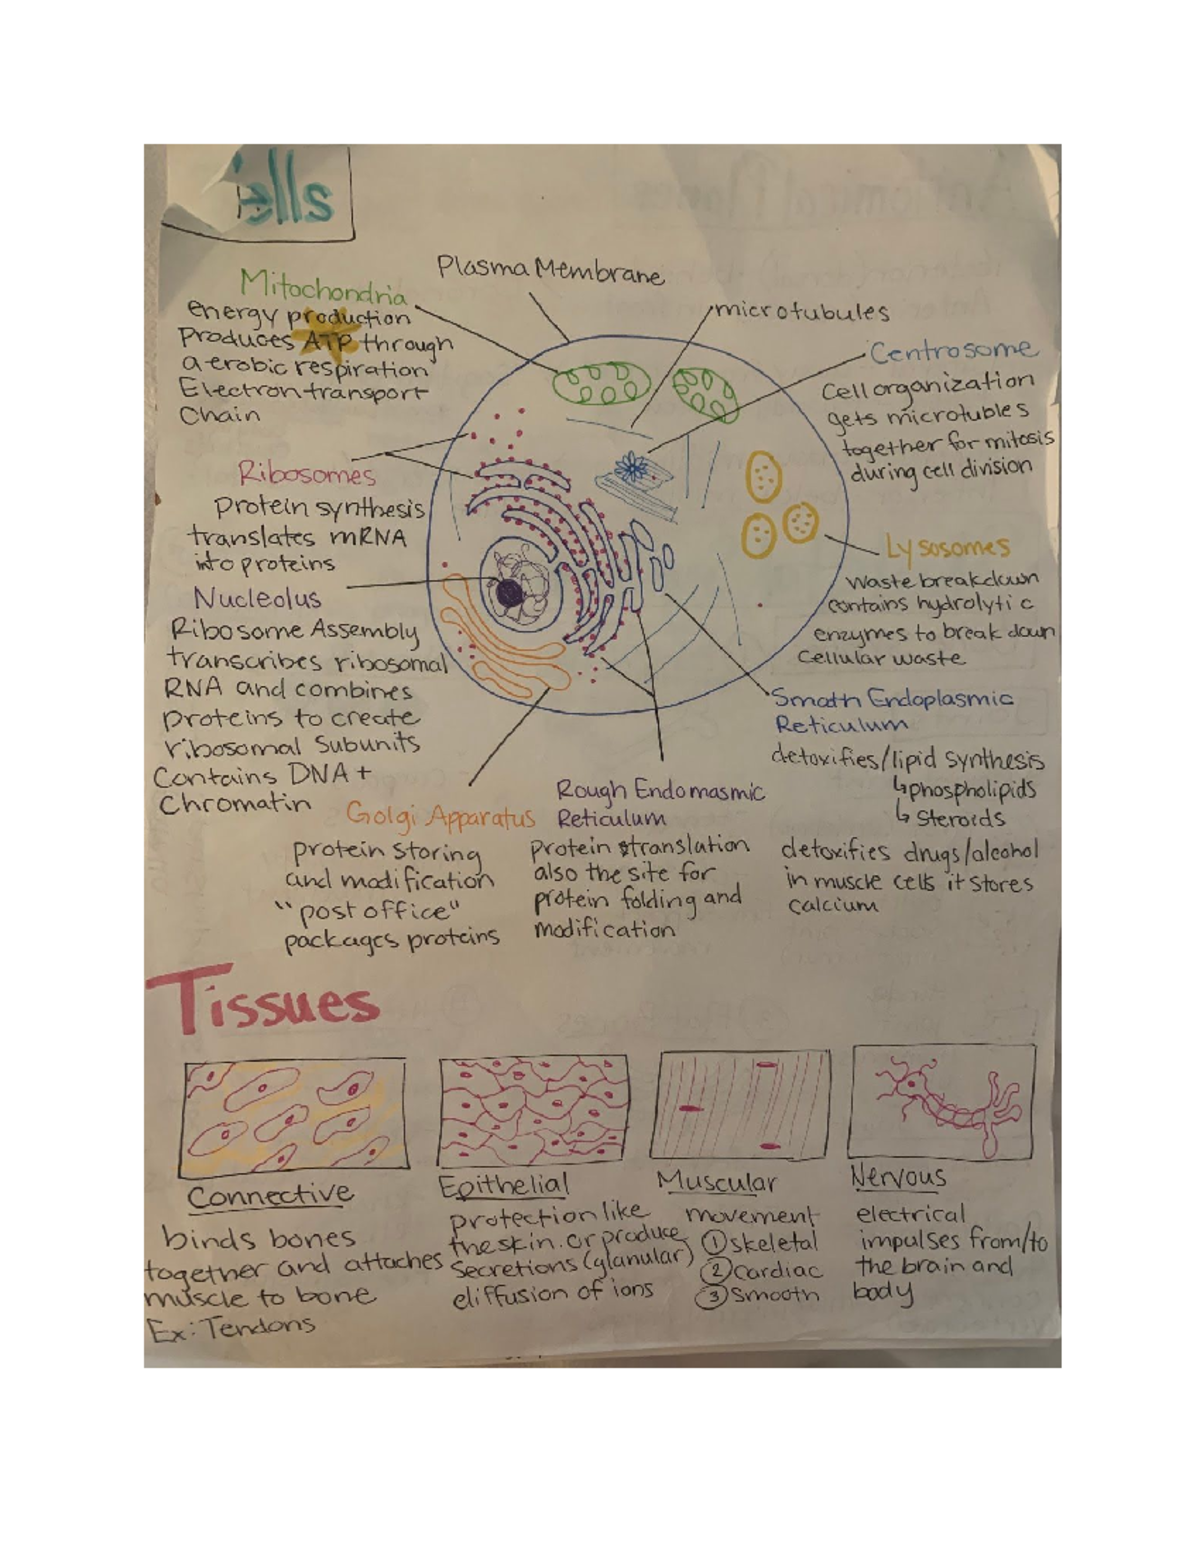 ells
Plasma Membrane
Mitochondria
energy production
Produces ATP through
aerobic respiration
Electron transport
Chain
microtubules
Centrosome
Cell organization
gets microtubles
together for mitosis
during cell division
Ribosomes
Protein synthesis
translates mRNA
into proteins
Nucleolus
Ribosome Assembly
transcribes ribosomal
RNA and combines
proteins to create
ribosomal Subunits
Contains DNA +
Chromatin
Lysosomes
Waste breakdown
contains hydrolytic
enzymes to break down
Cellular waste
Smooth Endoplasmic
Reticulum
detoxifies/lipid synthesis
↳ phospholipids
↳ Steroids
detoxifies drugs/alcohol
in muscle cells it stores
calcium
Golgi Apparatus
protein storing
and modification
"post office"
packages proteins
Rough Endomasmic
Reticulum
Protein translation
also the site for
protein folding and
modification
Tissues
Connective
binds bones
together and attaches
muscle to bone
Ex: Tendons
Epithelial
protection like
the skin. or produce
Secretions (glanular)
diffusion of ions
Muscular
movement
① skeletal
② Cardiac
③ Smooth
Nervous
electrical
impulses from/to
the brain and
body